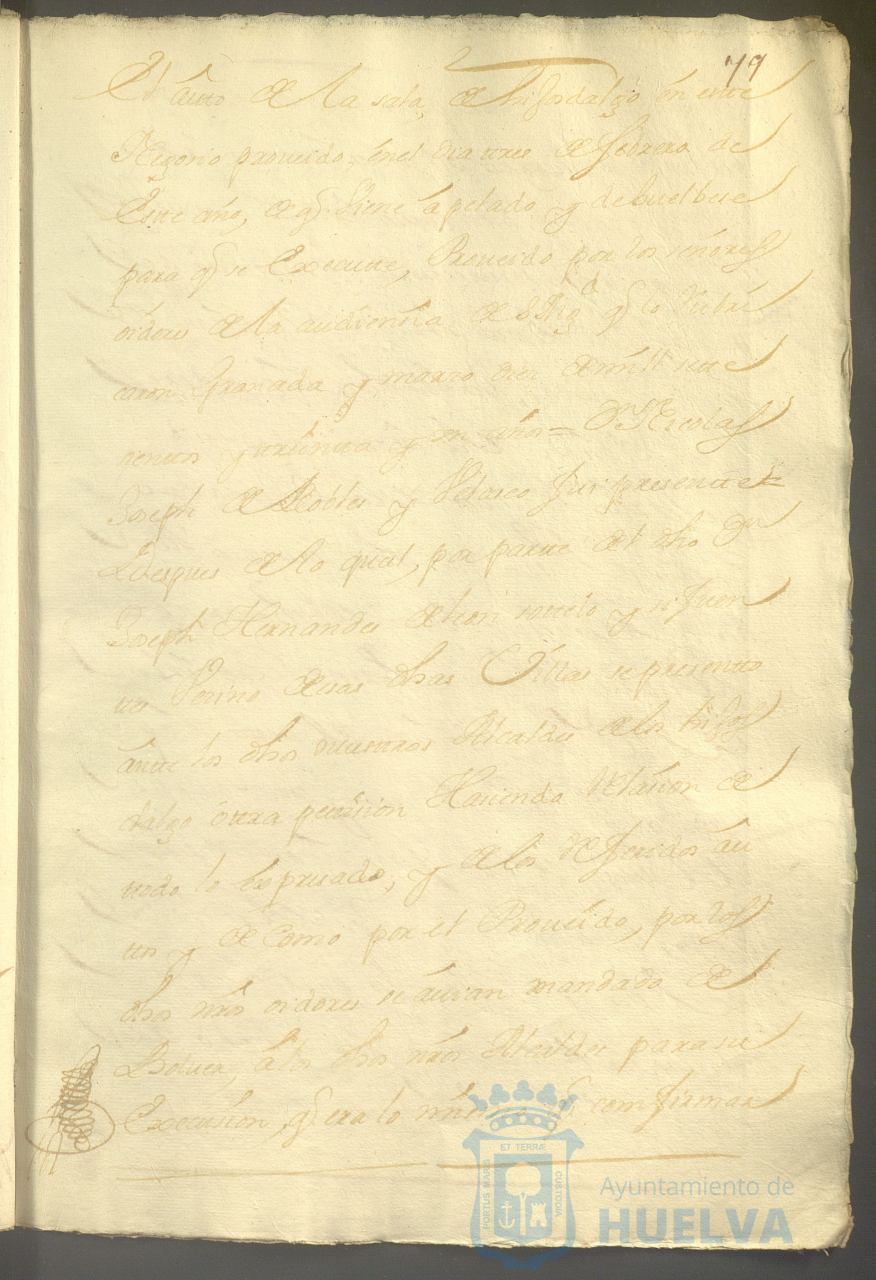 79
El auto de la sala de hijosdalgo en este
Negosio proueido en el dia tres de febrero de
Este año, de q̃ Viene apelado y debuelbese
para q̃ se Execute, Proueido por los señores
oidores de la audiensia de S Mag.d q̃ lo Rubri
caron Granada y marzo dies de mill sete
cientos y treinta y años = D.n Nicolas
Joseph de Robles y Velasco fui presente =
Despues de lo qual, por parte del dho D.n
Joseph Hernandes de y
tes Vecino desas dhas Villas se presento
ante los dhos nuestros Alcaldes de los hijos
dalgo otra petision Hasiendo Relasion de
todo lo Expresado, y de los Referidos au
tos y de Como por el Proueido, por los
dhos nros oidores se auian mandado de
Boluer, a los dhos nros Alcaldes para su
Execusion, q̃ era lo confirmar
ET TERRÆ
PORTUS MARIS
CUSTODIA
Ayuntamiento de
HUELVA